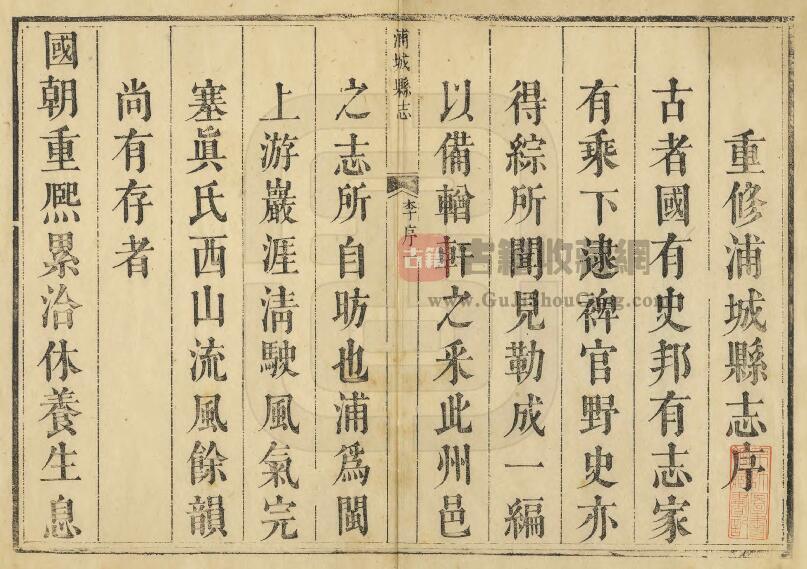 重修浦城縣志序
古者國有史邦有志家
有乘下逮稗官野史亦
得綜所聞見勒成一編
以備輶軒之采此州邑
浦城縣志
李序
之志所自昉也浦爲閩
上游巖涯淸駛風氣完
塞眞氏西山流風餘韻
尚有存者
國朝重熙累洽休養生息
古籍
古籍收藏網
www.GuJiShouCang.com